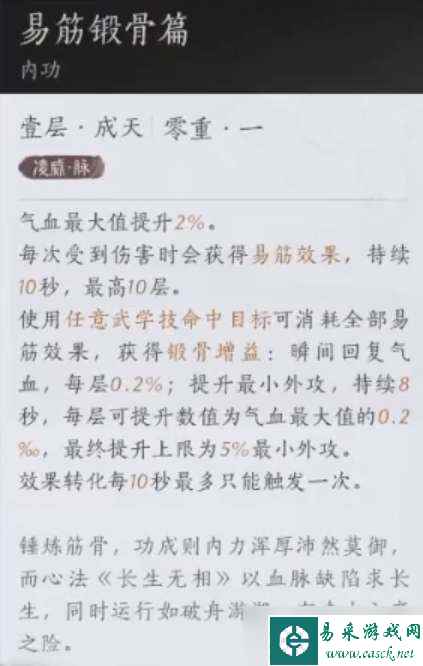 易筋锻骨篇
内功
壹层·成天 零重·一
凌威·脉
气血最大值提升2%。
每次受到伤害时会获得易筋效果，持续
10秒，最高10层。
使用任意武学技命中目标可消耗全部易
筋效果，获得锻骨增益：瞬间回复气
血，每层0.2%；提升最小外攻，持续8
秒，每层可提升数值为气血最大值的0.2
‰，最终提升上限为5%最小外攻。
效果转化每10秒最多只能触发一次。
锤炼筋骨，功成则内力浑厚沛然莫御，
而心法《长生无相》以血脉缺陷求长
生，同时运行如破舟
之险。
易采游戏网
www.easck.net